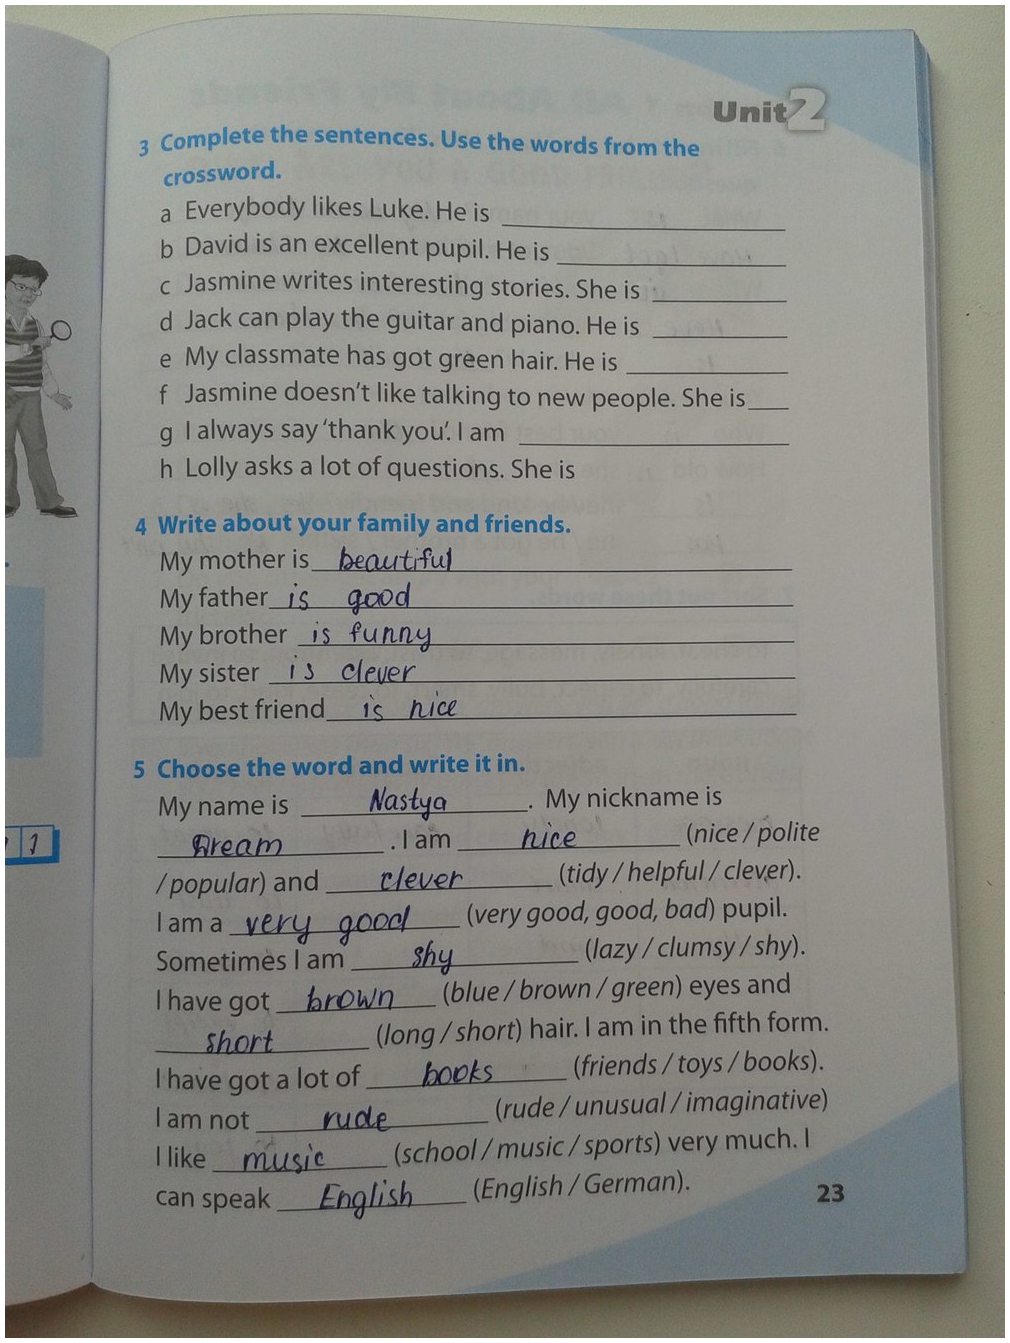 Unit 2
3 Complete the sentences. Use the words from the
crossword.
a Everybody likes Luke. He is
b David is an excellent pupil. He is
c Jasmine writes interesting stories. She is
d Jack can play the guitar and piano. He is
e My classmate has got green hair. He is
f Jasmine doesn't like talking to new people. She is
g I always say 'thank you'. I am
h Lolly asks a lot of questions. She is
4 Write about your family and friends.
My mother is beautiful
My father is good
My brother is funny
My sister is clever
My best friend is nice
5 Choose the word and write it in.
My name is Nastya. My nickname is
Dream. I am nice (nice / polite
/ popular) and clever (tidy / helpful / clever).
I am a very good (very good, good, bad) pupil.
Sometimes I am shy (lazy / clumsy / shy).
I have got brown (blue / brown / green) eyes and
short (long / short) hair. I am in the fifth form.
I have got a lot of books (friends / toys / books).
I am not rude (rude / unusual / imaginative)
I like music (school / music / sports) very much. I
can speak English (English / German).
1
23